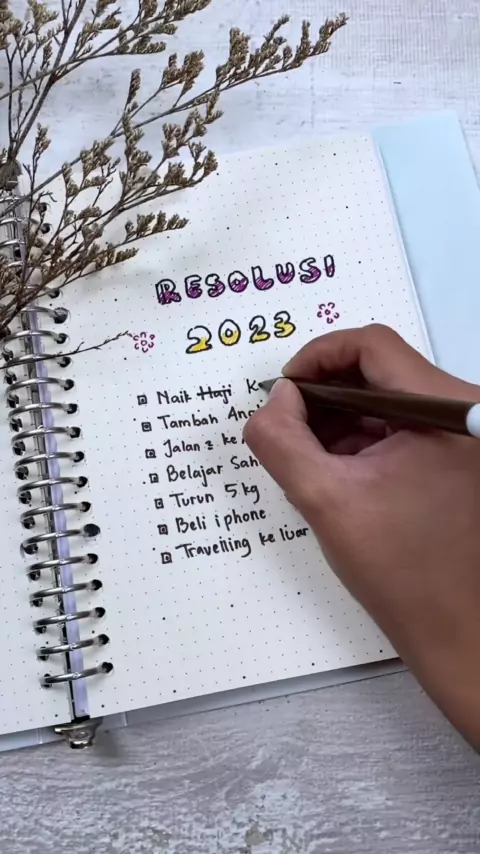 RESOLUSI
2023
Naik Haji
Tambah
Jalan2 ke
Belajar
Turun 5 kg
Beli iphone
Travelling ke luar